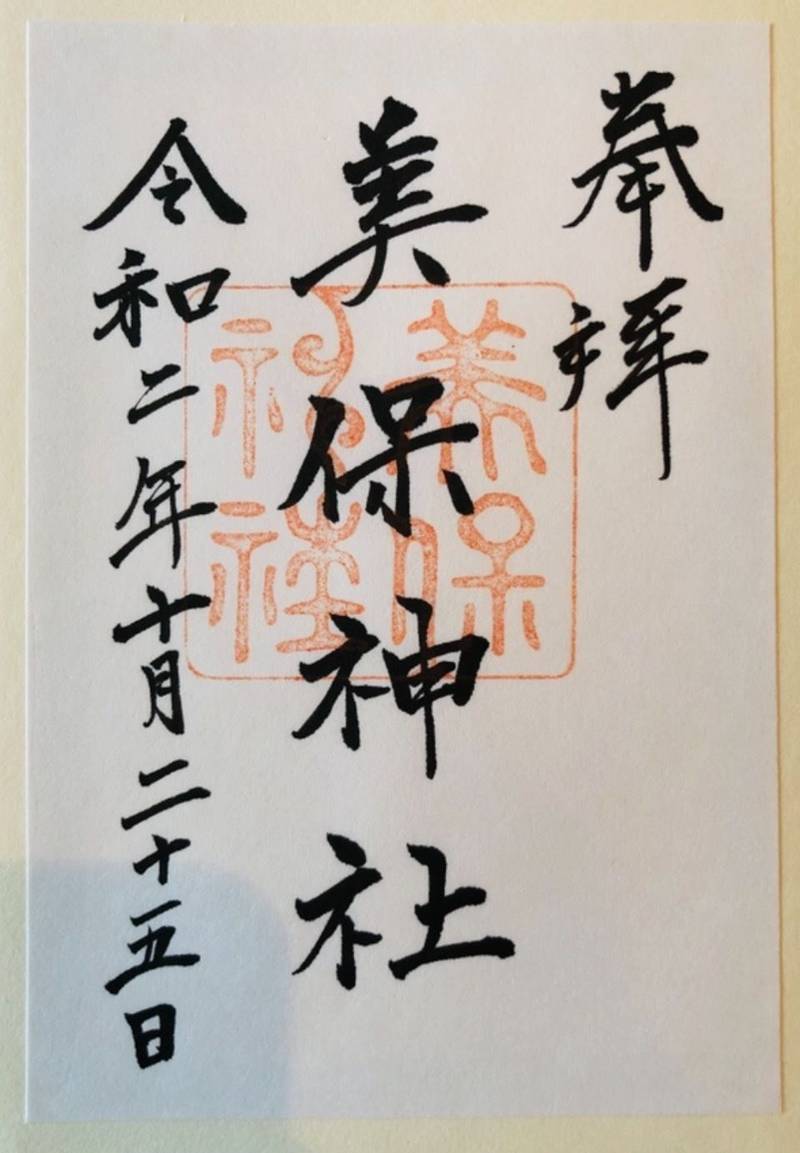 奉拝
美保神社
美保神社
令和二年十月二十五日